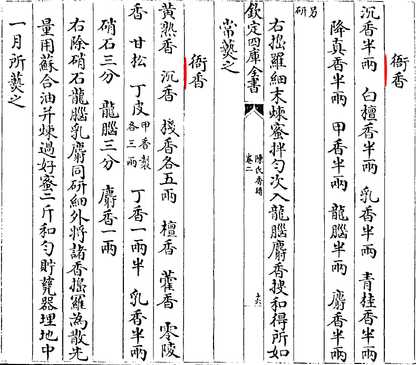 衙香
沉香半兩 白檀香半兩 乳香半兩 青桂香半兩
降真香半兩 甲香半兩 龍腦半兩 麝香半兩
另研
右搗羅細末煉蜜拌勻次入龍腦麝香搜和得所如
常爇之
欽定四庫全書 陳氏香譜 卷二
衙香
黃熟香 沉香 棧香各五兩 檀香 藿香 零陵
香 甘松 丁皮 甲香製各三兩 丁香一兩半 乳香半兩
硝石三分 龍腦三分 麝香一兩
右除硝石龍腦乳麝同研細外將諸香搗羅為散先
量用蘇合油并煉過好蜜二斤和勻貯甆器埋地中
一月所爇之